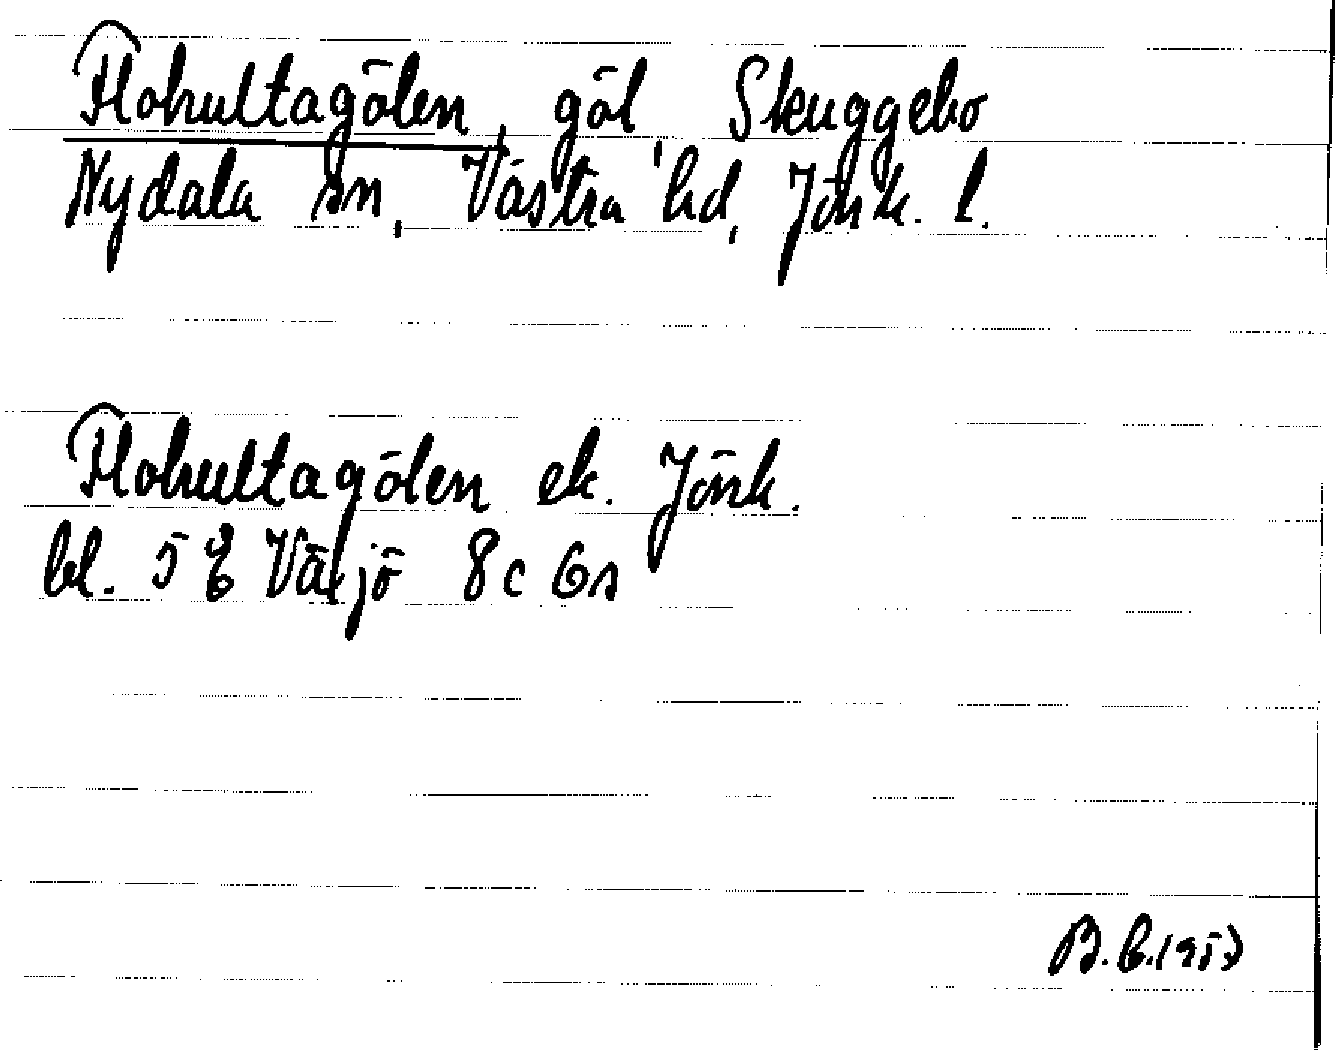 Flohultagölen, göl, Skuggebo
Nydala sn, Västra hd, Jönk. l.
Flohultagölen ek. Jönk.
bl. 5 E Växjö 8c Gs
B.E. 1957